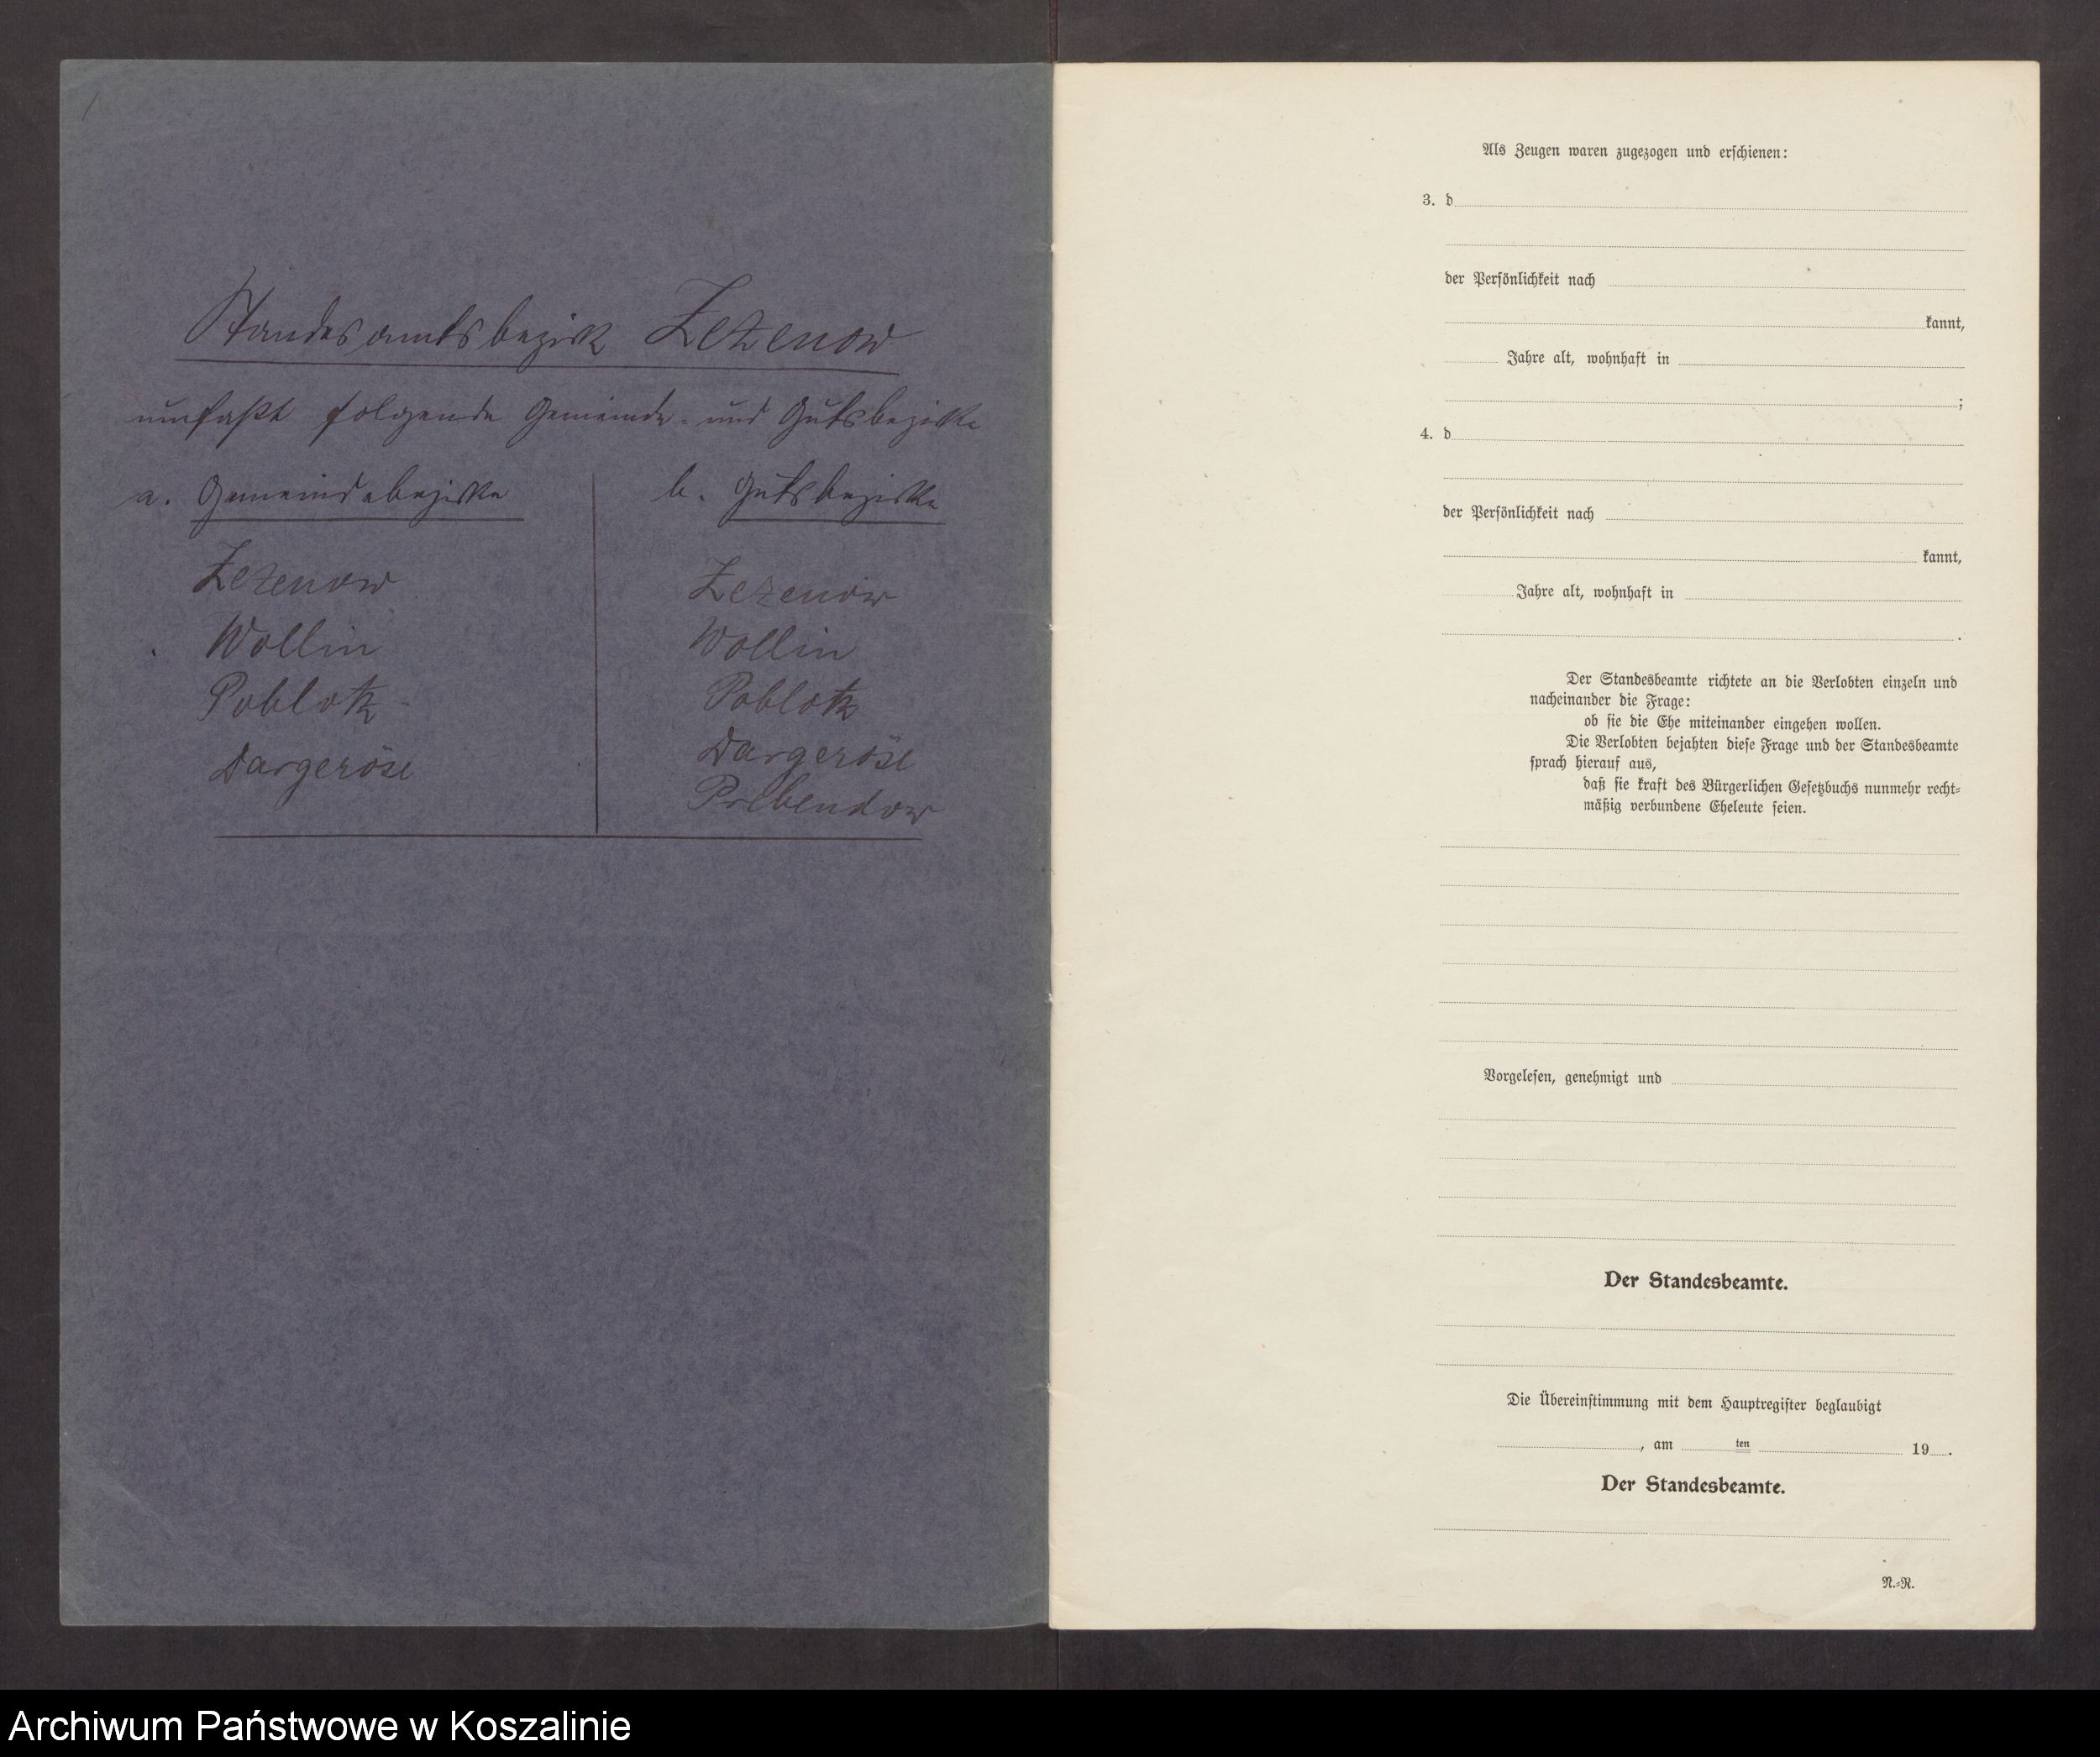 Standesamtsbezirk Zezenow
umfaßt folgende Gemeinde- und Gutsbezirke
a. Gemeindebezirke
Zezenow
Wollin
Poblotz
Dargeröse
b. Gutsbezirke
Zezenow
Wollin
Poblotz
Dargeröse
Prebendow
Als Zeugen waren zugezogen und erschienen:
3. d
der Persönlichkeit nach
kannt,
Jahre alt, wohnhaft in
;
4. d
der Persönlichkeit nach
kannt,
Jahre alt, wohnhaft in
.
Der Standesbeamte richtete an die Verlobten einzeln und
nacheinander die Frage:
ob sie die Ehe miteinander eingehen wollen.
Die Verlobten bejahten diese Frage und der Standesbeamte
sprach hierauf aus,
daß sie kraft des Bürgerlichen Gesetzbuchs nunmehr recht-
mäßig verbundene Eheleute seien.
Vorgelesen, genehmigt und
Der Standesbeamte.
Die Übereinstimmung mit dem Hauptregister beglaubigt
, am ten 19 .
Der Standesbeamte.
N.-R.
Archiwum Państwowe w Koszalinie